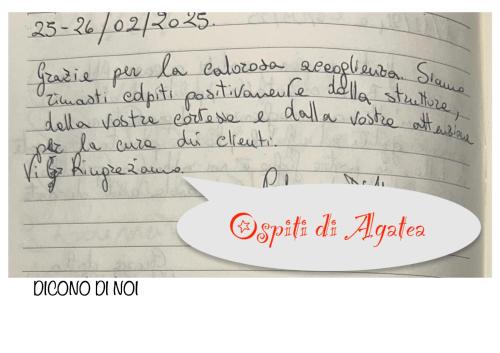 25-26/02/2025.
Grazie per la calorosa accoglienza. Siamo
rimasti colpiti positivamente dalla struttura,
dalla vostra cortesia e dalla vostra attenzione
per la cura dei clienti.
Vi Ringraziamo.
Ospiti di Agatea
DICONO DI NOI